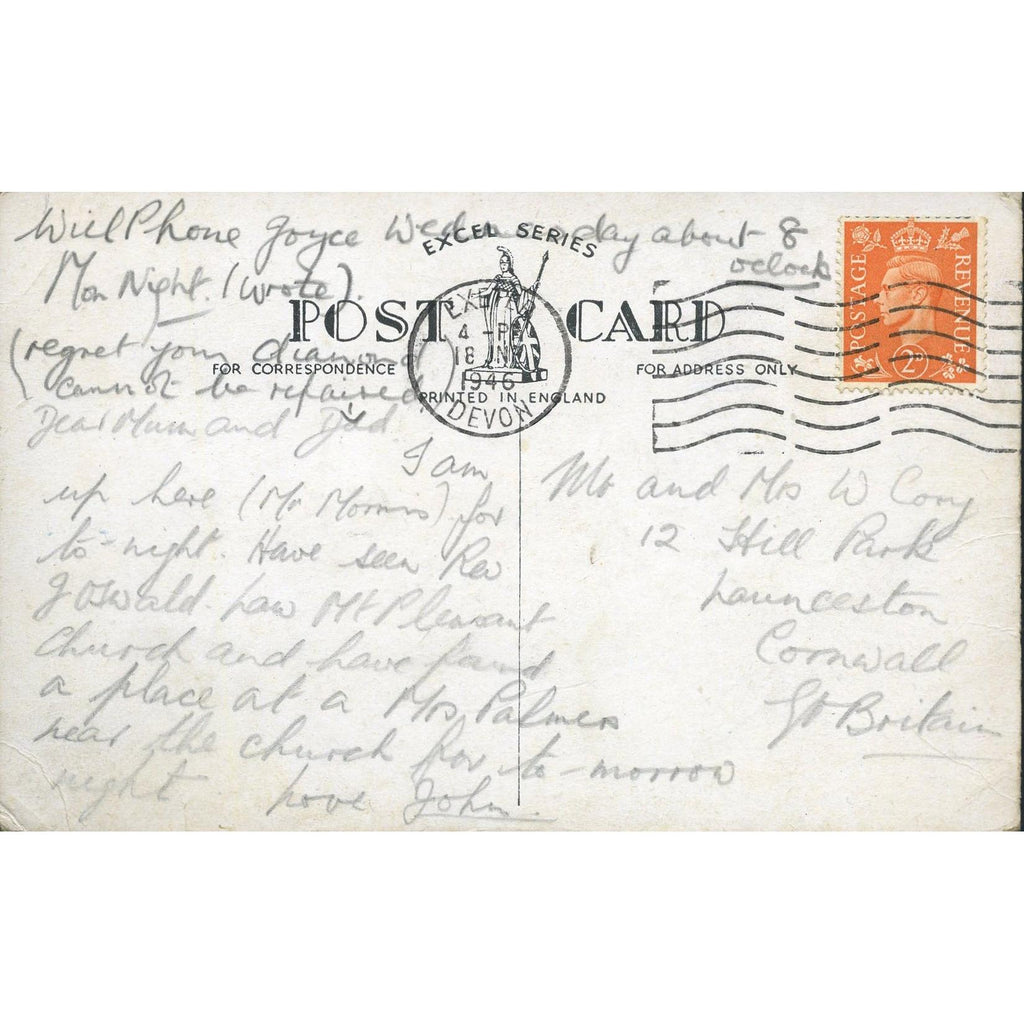 Will Phone Joyce Wednesday about 8
oclock
Mon Night. (Wrote).
EXCEL SERIES
POST CARD
(regret your diamond
cannot be repaired)
FOR CORRESPONDENCE
FOR ADDRESS ONLY
PRINTED IN ENGLAND
EXETER
4 - P
18 N
1946
DEVON
POSTAGE REVENUE
2D
Dear Mum and Dad.
I am
up here (Mr Morris) for
to-night. Have seen Rev
J Oswald. Law Mt Pleasant
Church and have found
a place at a Mrs Palmers
near the church for to-morrow
night. Love John
Mr and Mrs W Cory
12 Hill Park
Launceston
Cornwall
Gt Britain